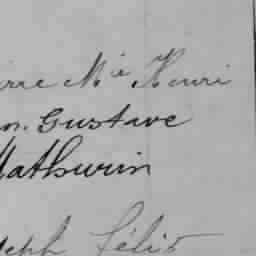 rre Mie Henri
n. Gustave
Mathurin
seph Félix